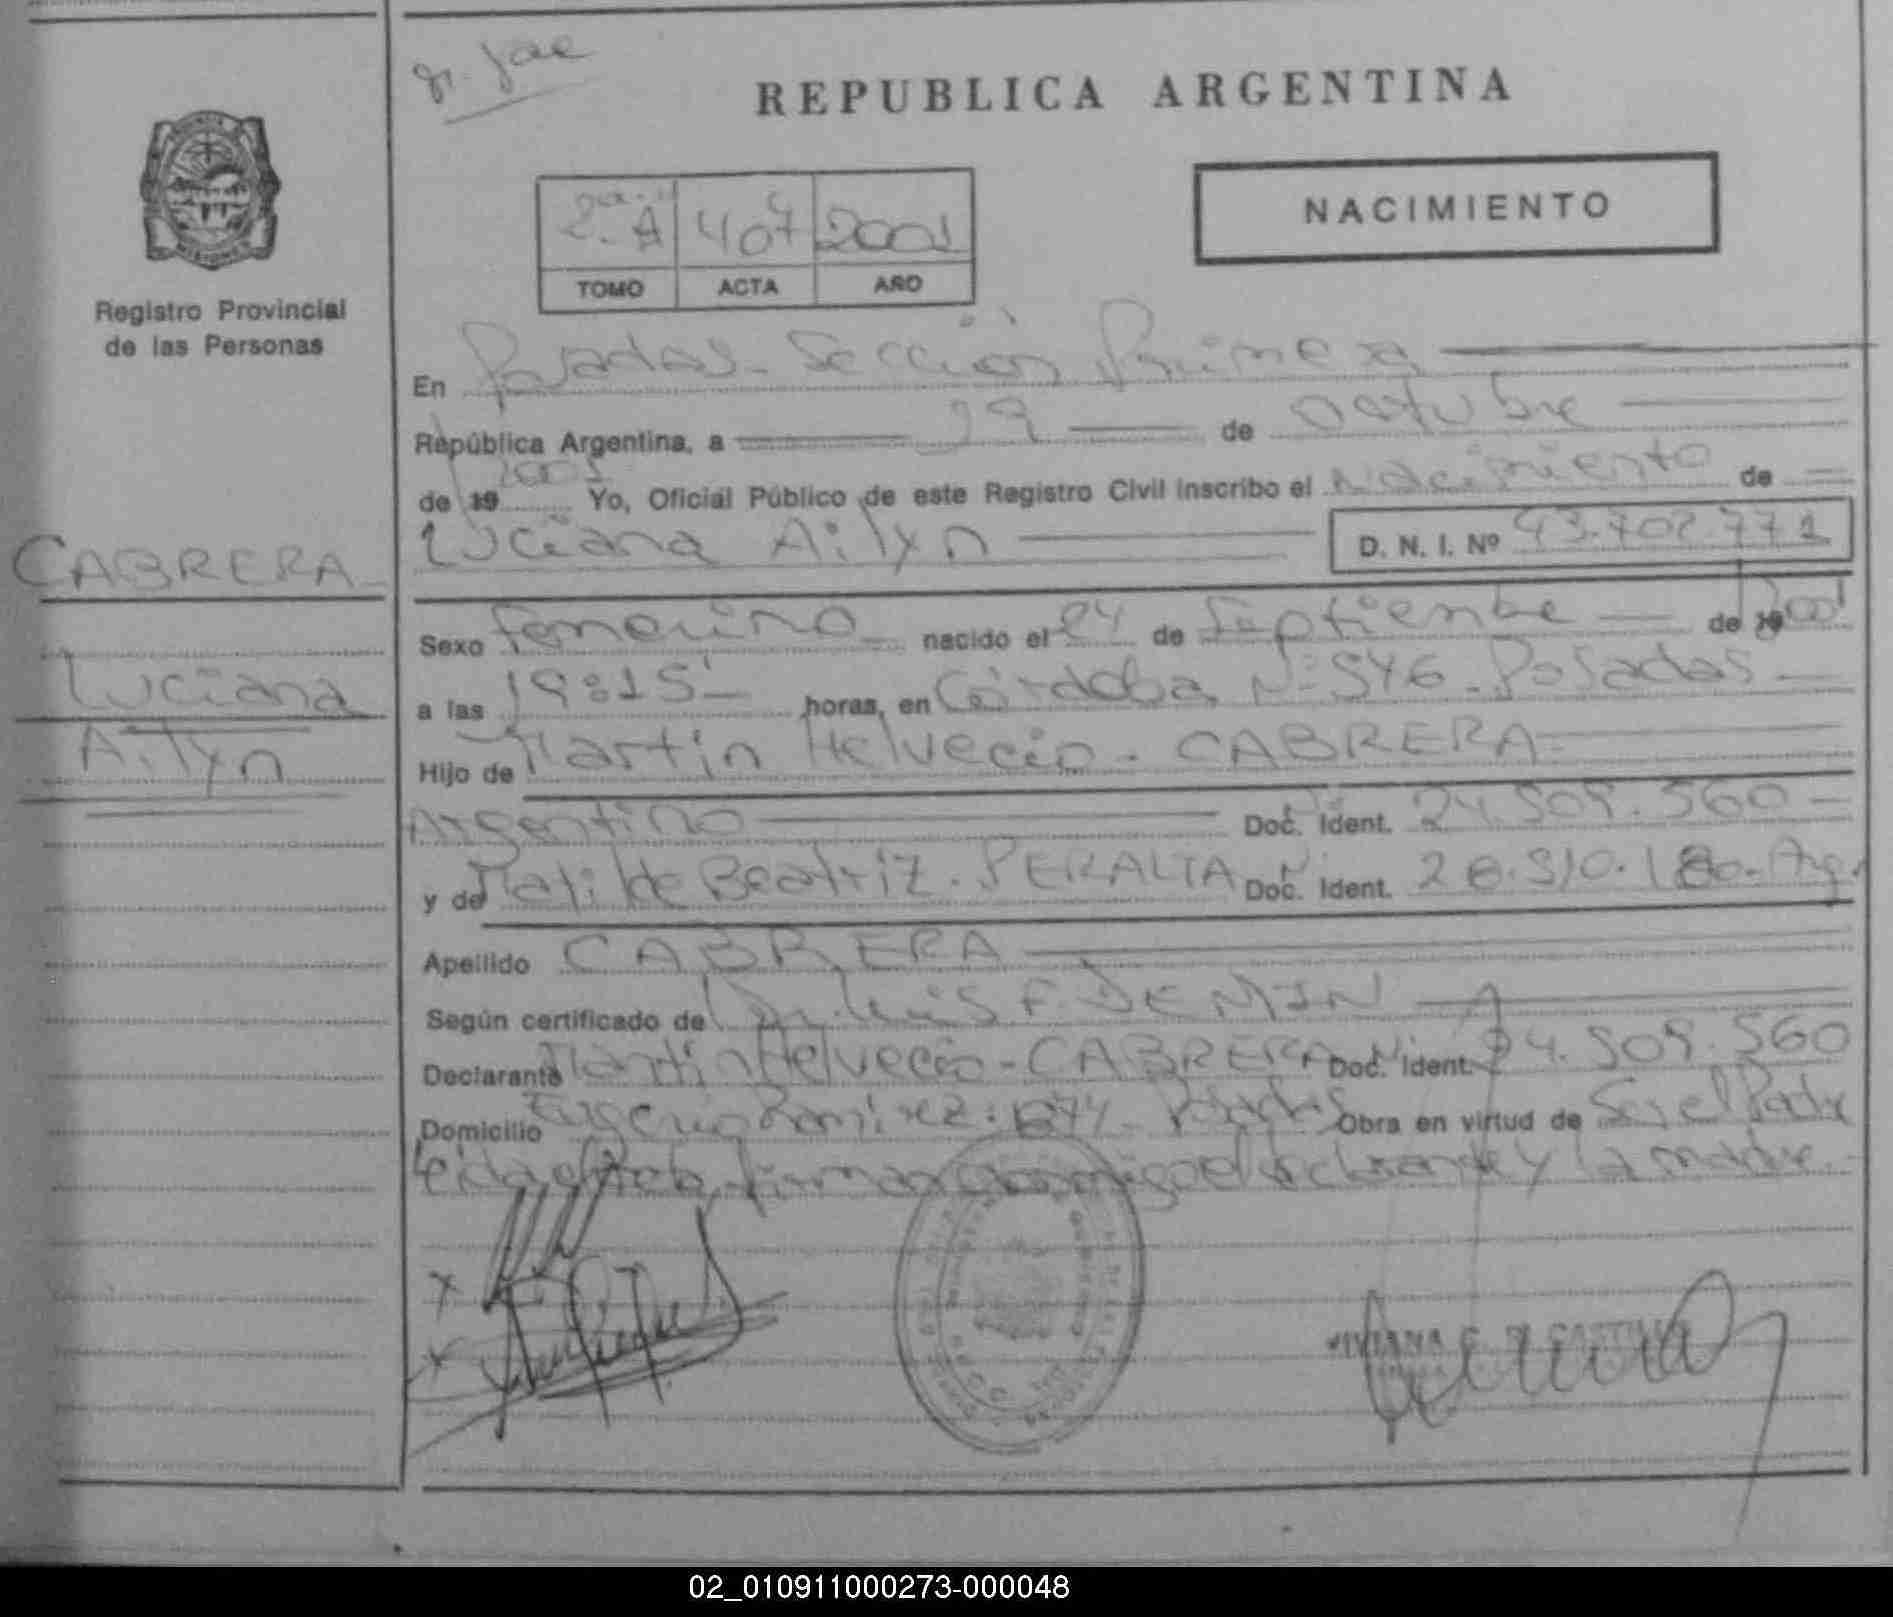 REPUBLICA ARGENTINA
2º A 407 2001
TOMO ACTA AÑO
NACIMIENTO
PROVINCIA
MISIONES
Registro Provincial
de las Personas
CABRERA
Luciana
Ailyn
En Posadas - Sección Primera
República Argentina, a 19 de octubre
de 19 2001 Yo, Oficial Público de este Registro Civil inscribo el Nacimiento de
Luciana Ailyn D. N. I. Nº 43.702.771
Sexo femenino nacido el 24 de Septiembre de 19 2001
a las 19:15' horas, en Córdoba Nº 546 - Posadas
Hijo de Martin Helvecio - CABRERA
Argentino Doc. Ident. 24.509.560
y de Matilde Beatriz - PERALTA Doc. Ident. 28.510.180 - Arg.
Apellido CABRERA
Según certificado de Dr. Luis F. DEMIN
Declarante Martin Helvecio - CABRERA Doc. Ident. 24.509.560
Domicilio Eugenio Ramirez: Posadas Obra en virtud de Ser el Padre
leida el Acta firman conmigo el declarante y la madre.
x
x
VIVIANA DI CASTI
02_010911000273-000048